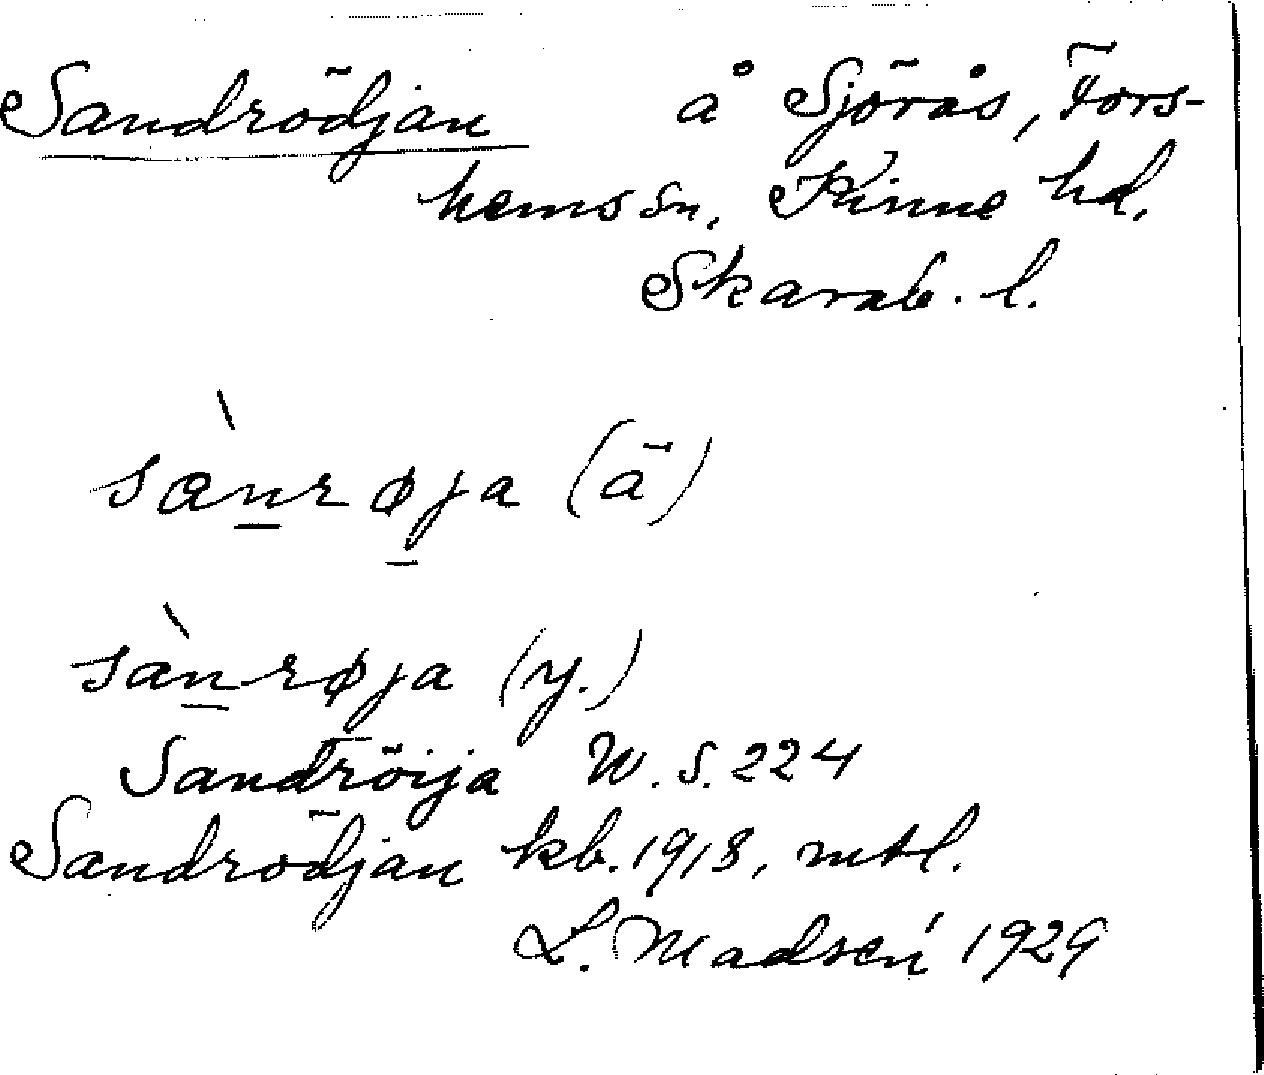 Sandrödjan å Sjörås, Fors-
hems sn, Kinne hd,
Skarab. l.
sànrøja (ä)
sànrøja (y.)
Sandröija W. S. 224
Sandrödjan kb. 1918, mtl.
L. Madsén 1929